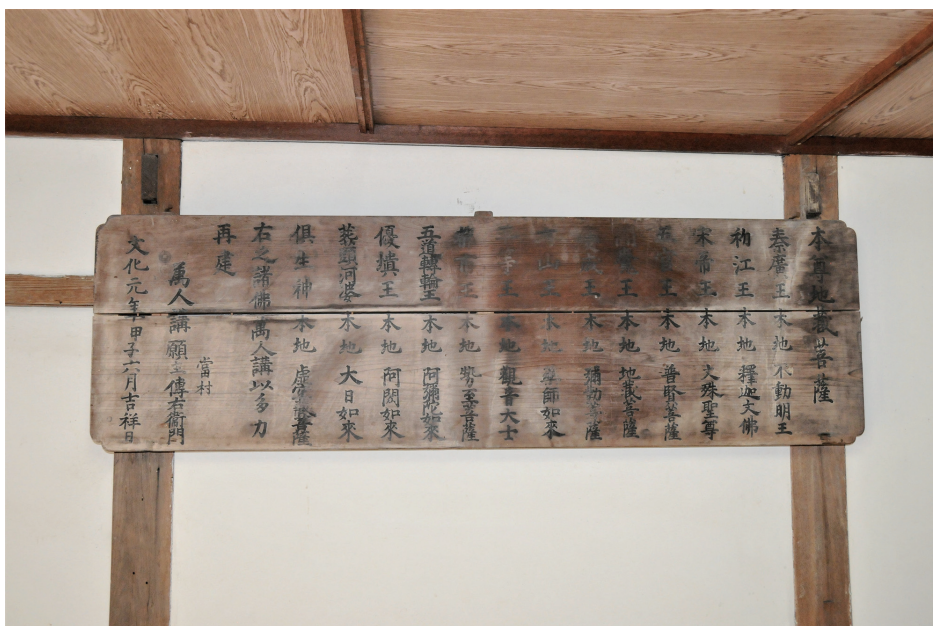 本尊地蔵菩薩
秦廣王 本地 不動明王
初江王 本地 釋迦文佛
宋帝王 本地 文殊聖尊
五官王 本地 普賢菩薩
王 本地 地蔵菩薩
王 本地 彌勒菩薩
山王 本地 師如來
王 本地 觀音大士
王 本地 勢至菩薩
五道轉輪王 本地 阿彌陀如來
優塡王 本地 阿閦如來
葬頭河婆 本地 大日如來
倶生神 本地 虚空蔵菩薩
右之諸佛萬人講以多力
再建
當村
萬人講 願主 傳右衛門
文化元年甲子六月吉祥日